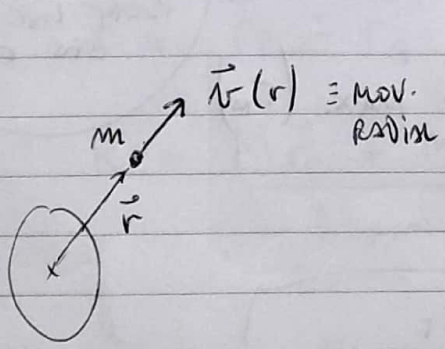 v⃗(r) ≡ MOV.
RADIAL
m
r⃗